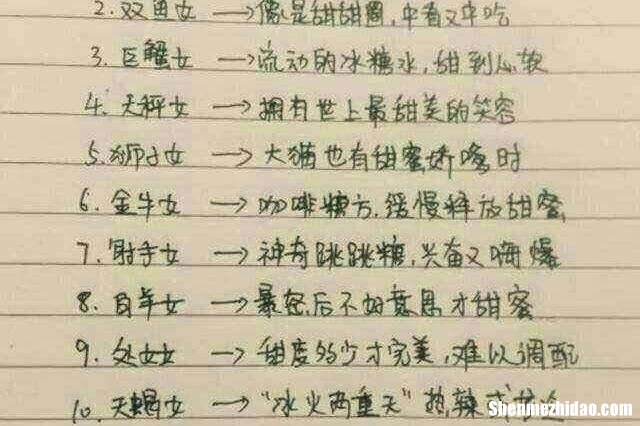 2. 双鱼女 → 像是甜甜圈，中看又中吃
3. 巨蟹女 → 流动的冰糖水，甜到心软
4. 天秤女 → 拥有世上最甜美的笑容
5. 狮子女 → 大猫也有甜蜜娇嗲时
6. 金牛女 → 咖啡糖方，缓慢释放甜蜜
7. 射手女 → 神奇跳跳糖，兴奋又嗨爆
8. 白羊女 → 暴怒后不好意思才甜蜜
9. 处女女 → 甜度多少才完美，难以调配
10. 天蝎女 → “冰火两重天”热辣或
Shenmezhidao.com